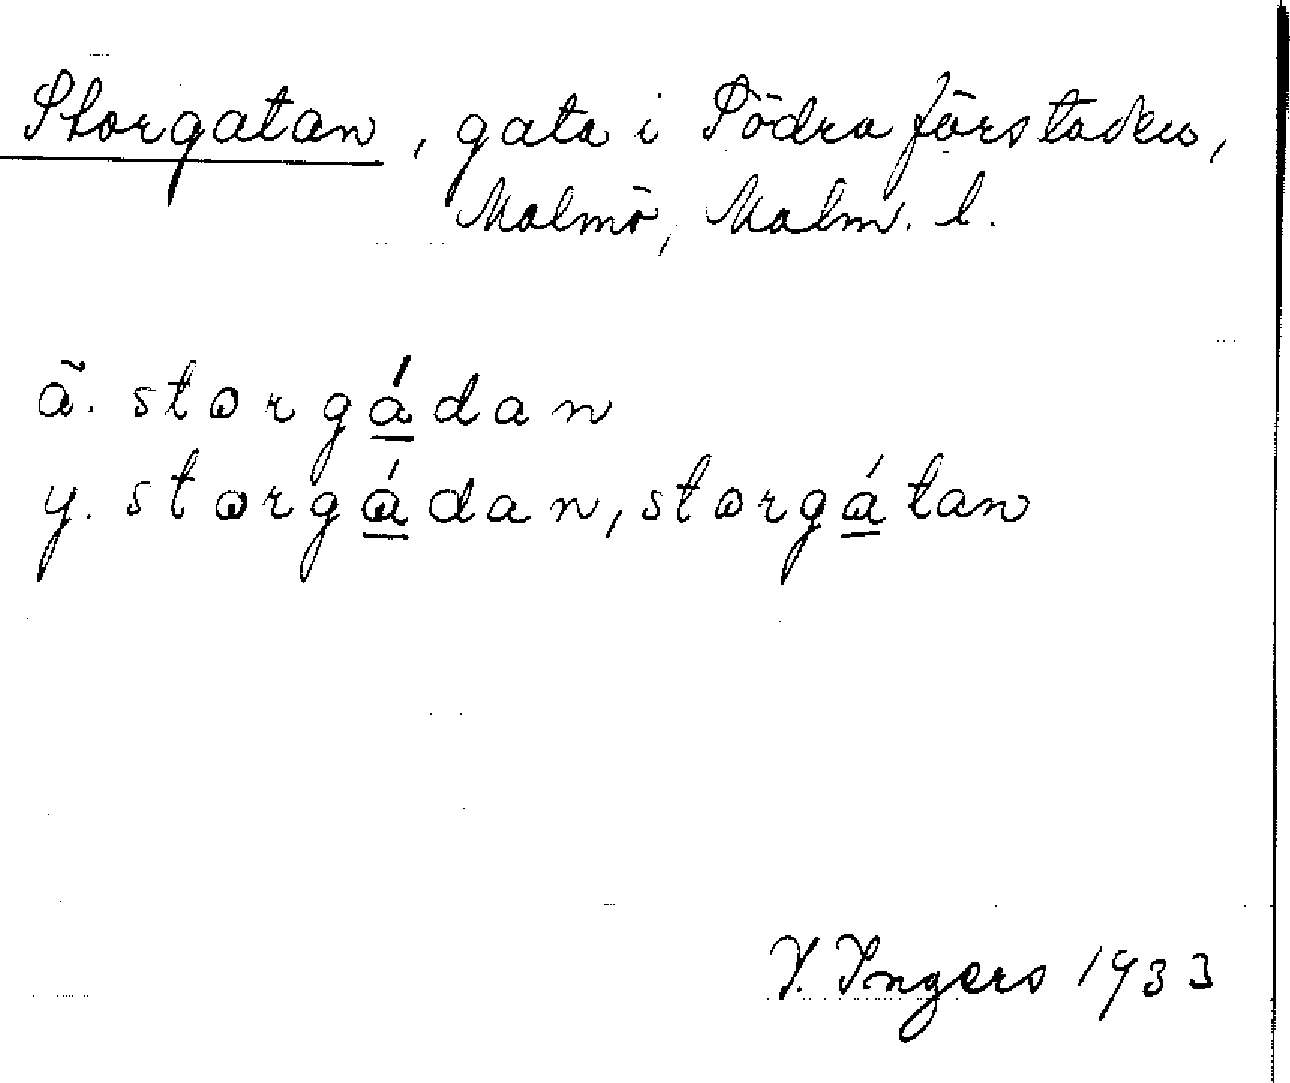 Storgatan, gata i Södra förstaden,
Malmö, Malm. l.
ã. storgá̲dan
y. storgá̲dan, storgá̲tan
I. Ingers 1933